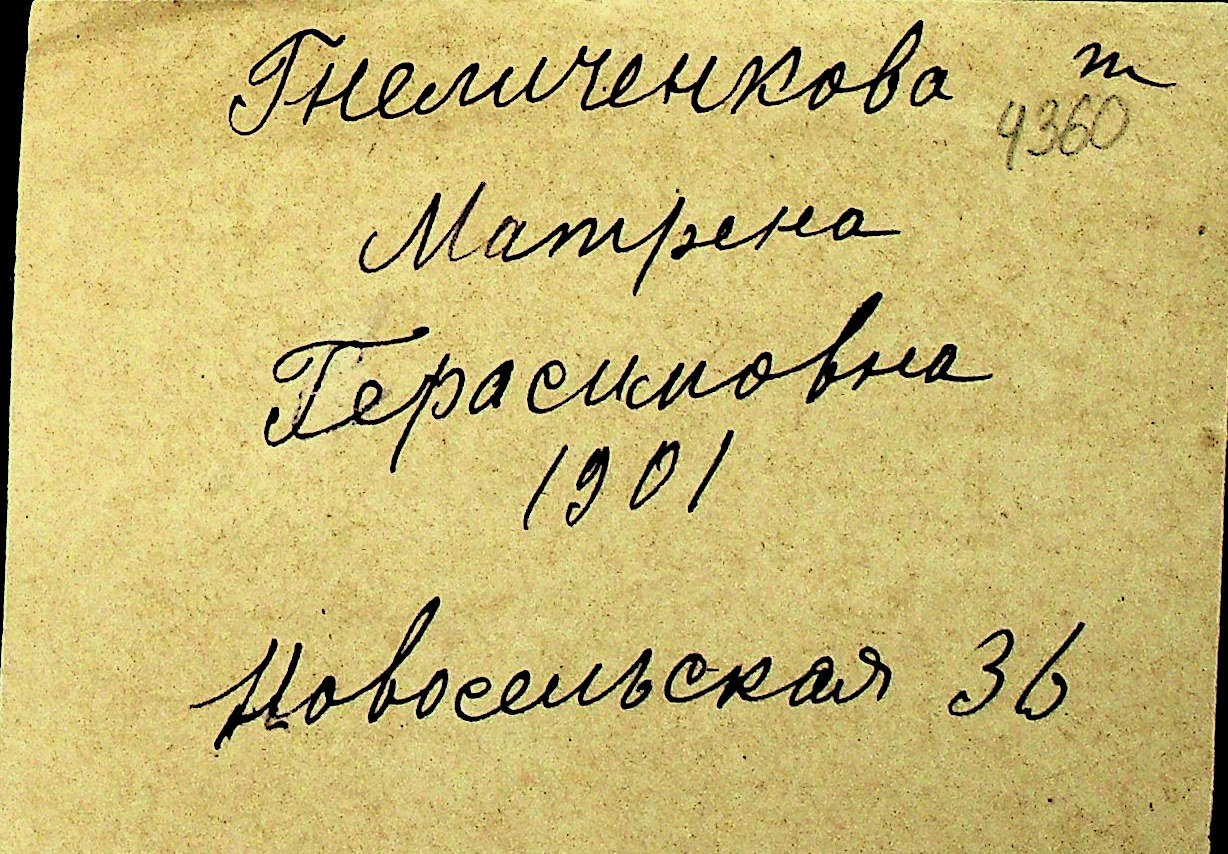 Гнеличенкова т
4360
Матрена
Герасимовна
1901
Новосельская 36